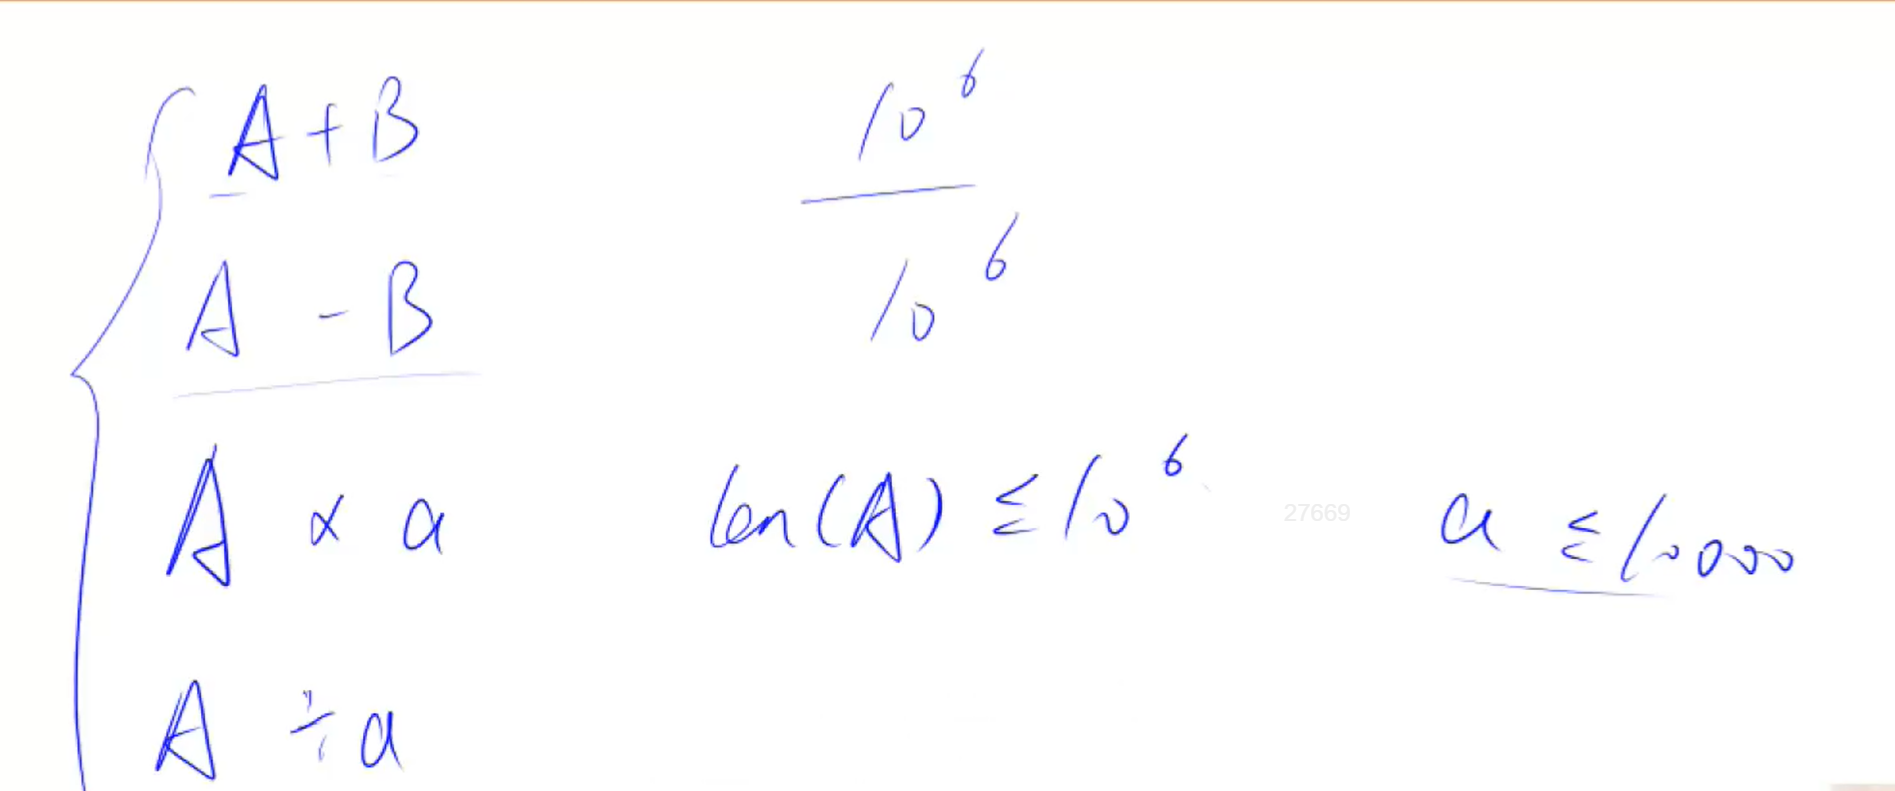 A + B 10^6
A - B 10^6
A × a len(A) ≤ 10^6 27669 a ≤ 10000
A ÷ a